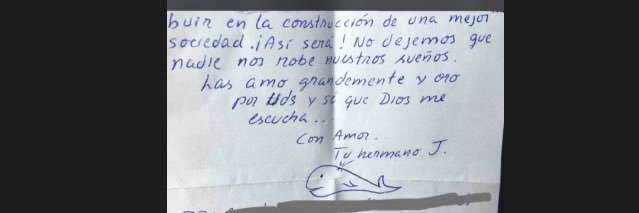 buir en la construcción de una mejor
sociedad. ¡Así será! No dejemos que
nadie nos robe nuestros sueños.
Las amo grandemente y oro
por Uds y sé que Dios me
escucha...
Con Amor.
Tu hermano J.